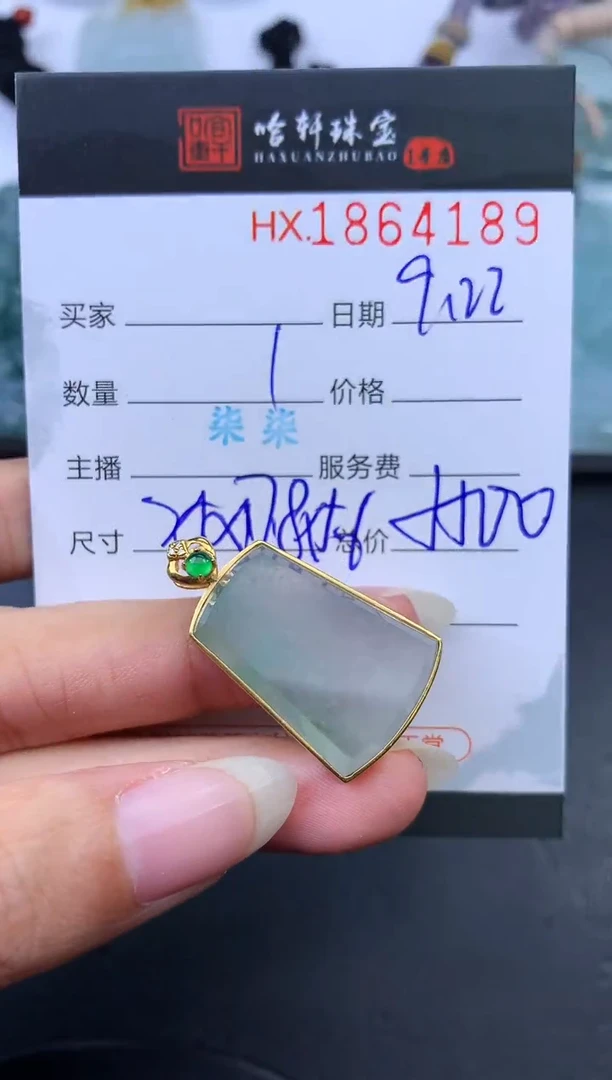 哈轩珠宝
HAXUANZHUBAO 1号店
HX.1864189
买家 日期 9.22
数量 1 价格
柒柒
主播 服务费
尺寸 总价